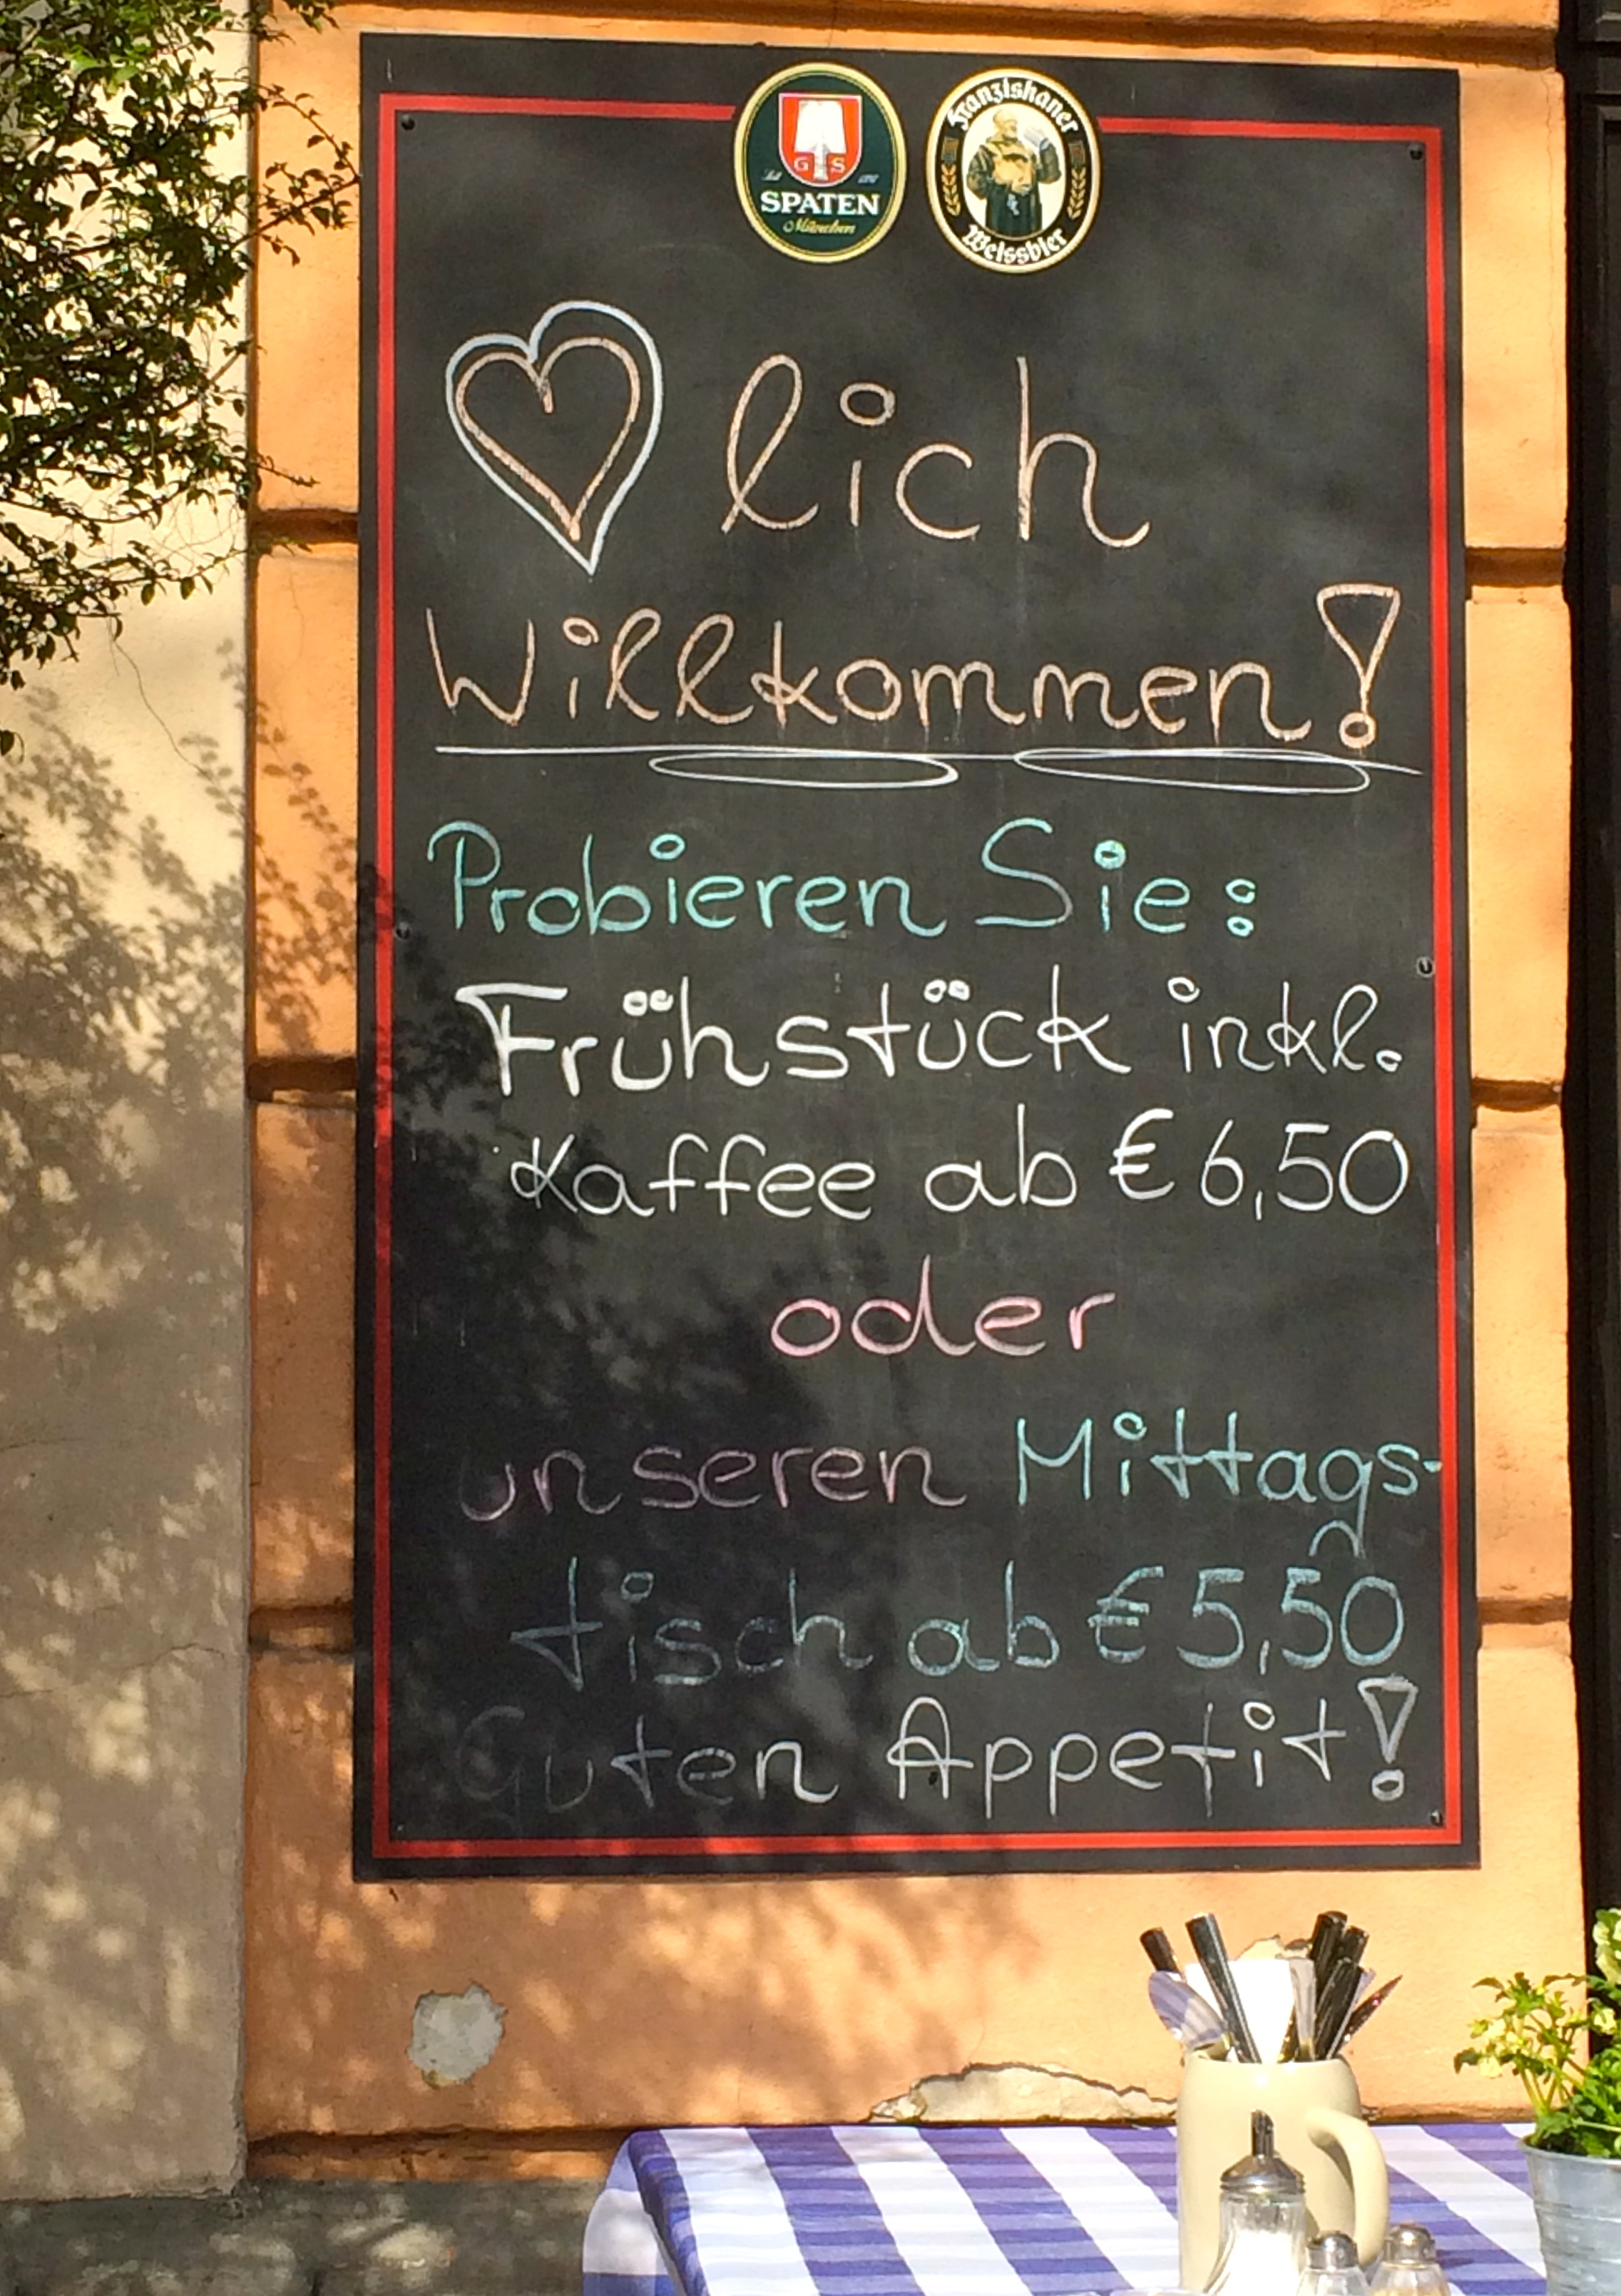 G S
SPATEN
München
Franziskaner
Weissbier
lich
Willkommen!
Probieren Sie:
Frühstück inkl.
Kaffee ab € 6,50
oder
unseren Mittags-
tisch ab € 5,50
Guten Appetit!